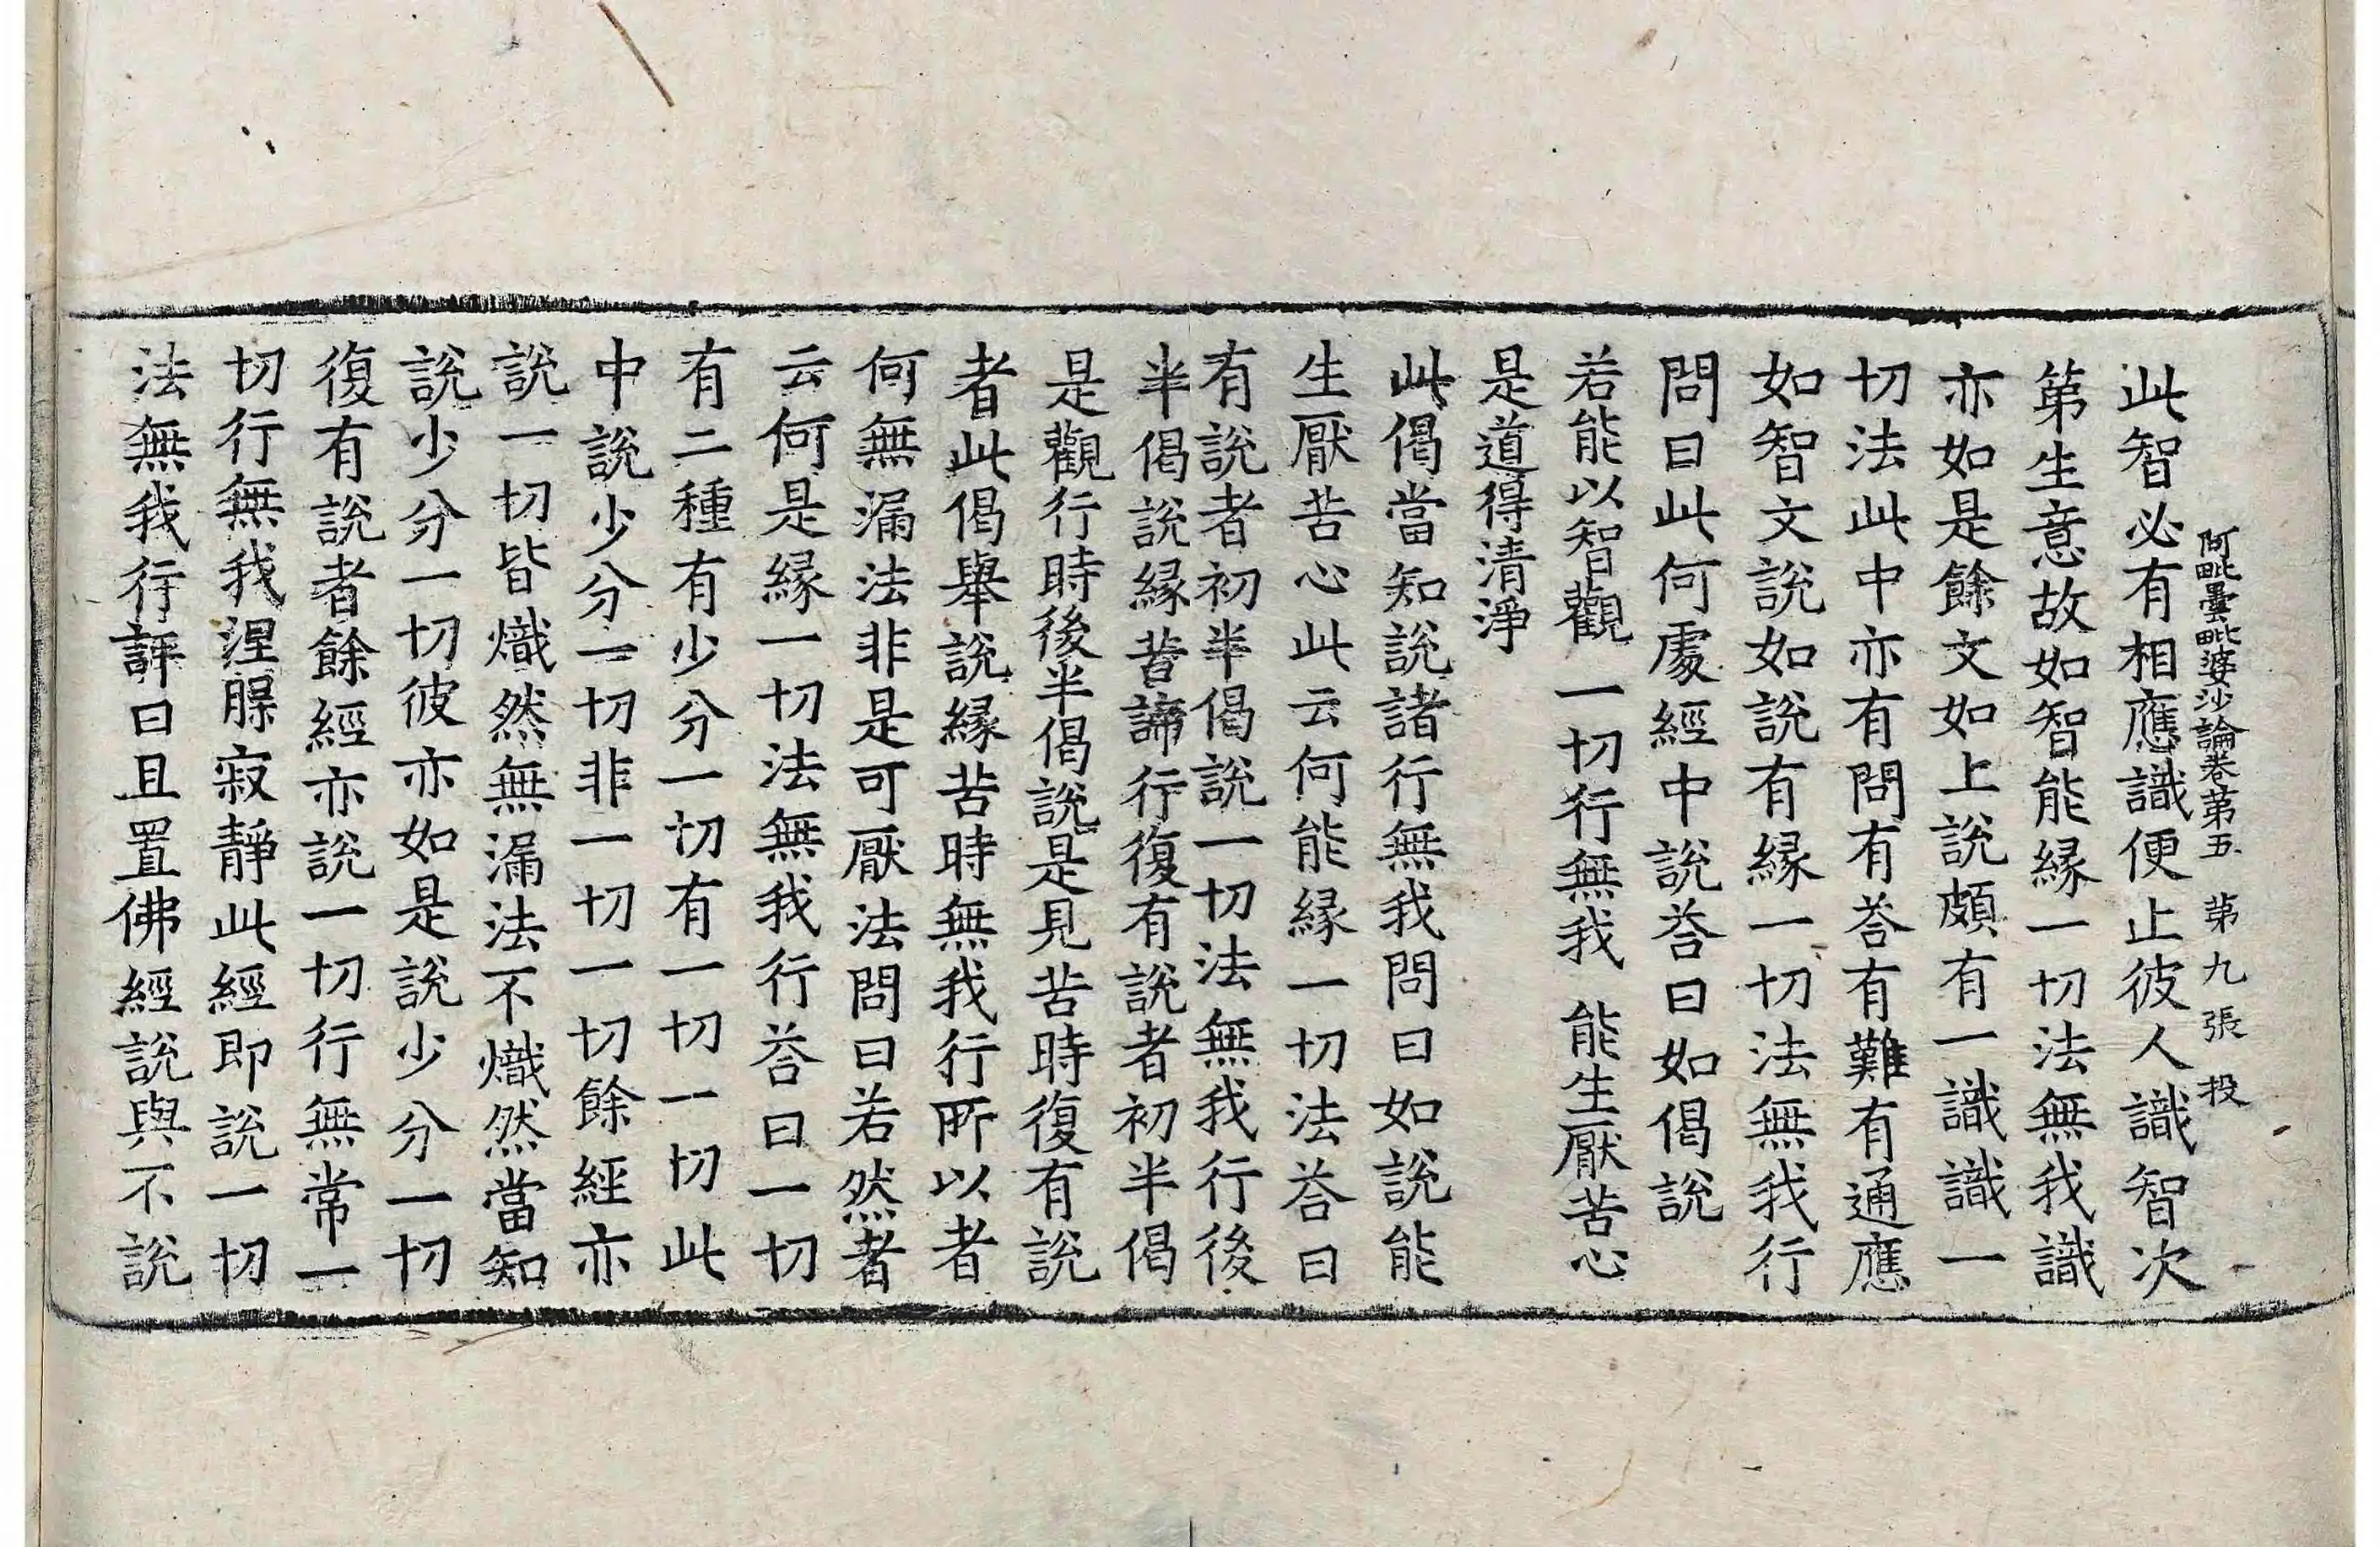 阿毗曇毗婆沙論卷第五 第九張 投
此智必有相應識便止彼人識智次
第生意故如智能緣一切法無我識
亦如是餘文如上說頗有一識識一
切法此中亦有問有荅有難有通應
如智文說如說有緣一切法無我行
問曰此何處經中說荅曰如偈說
若能以智觀 一切行無我 能生厭苦心
是道得清淨
此偈當知說諸行無我問曰如說能
生厭苦心此云何能緣一切法荅曰
有說者初半偈說一切法無我行後
半偈說緣苦諦行復有說者初半偈
是觀行時後半偈說是見苦時復有說
者此偈舉說緣苦時無我行所以者
何無漏法非是可厭法問曰若然者
云何是緣一切法無我行荅曰一切
有二種有少分一切有一切一切此
中說少分一切非一切一切餘經亦
說一切皆熾然無漏法不熾然當知
說少分一切彼亦如是說少分一切
復有說者餘經亦說一切行無常一
切行無我涅槃寂靜此經即說一切
法無我行評曰且置佛經說與不說